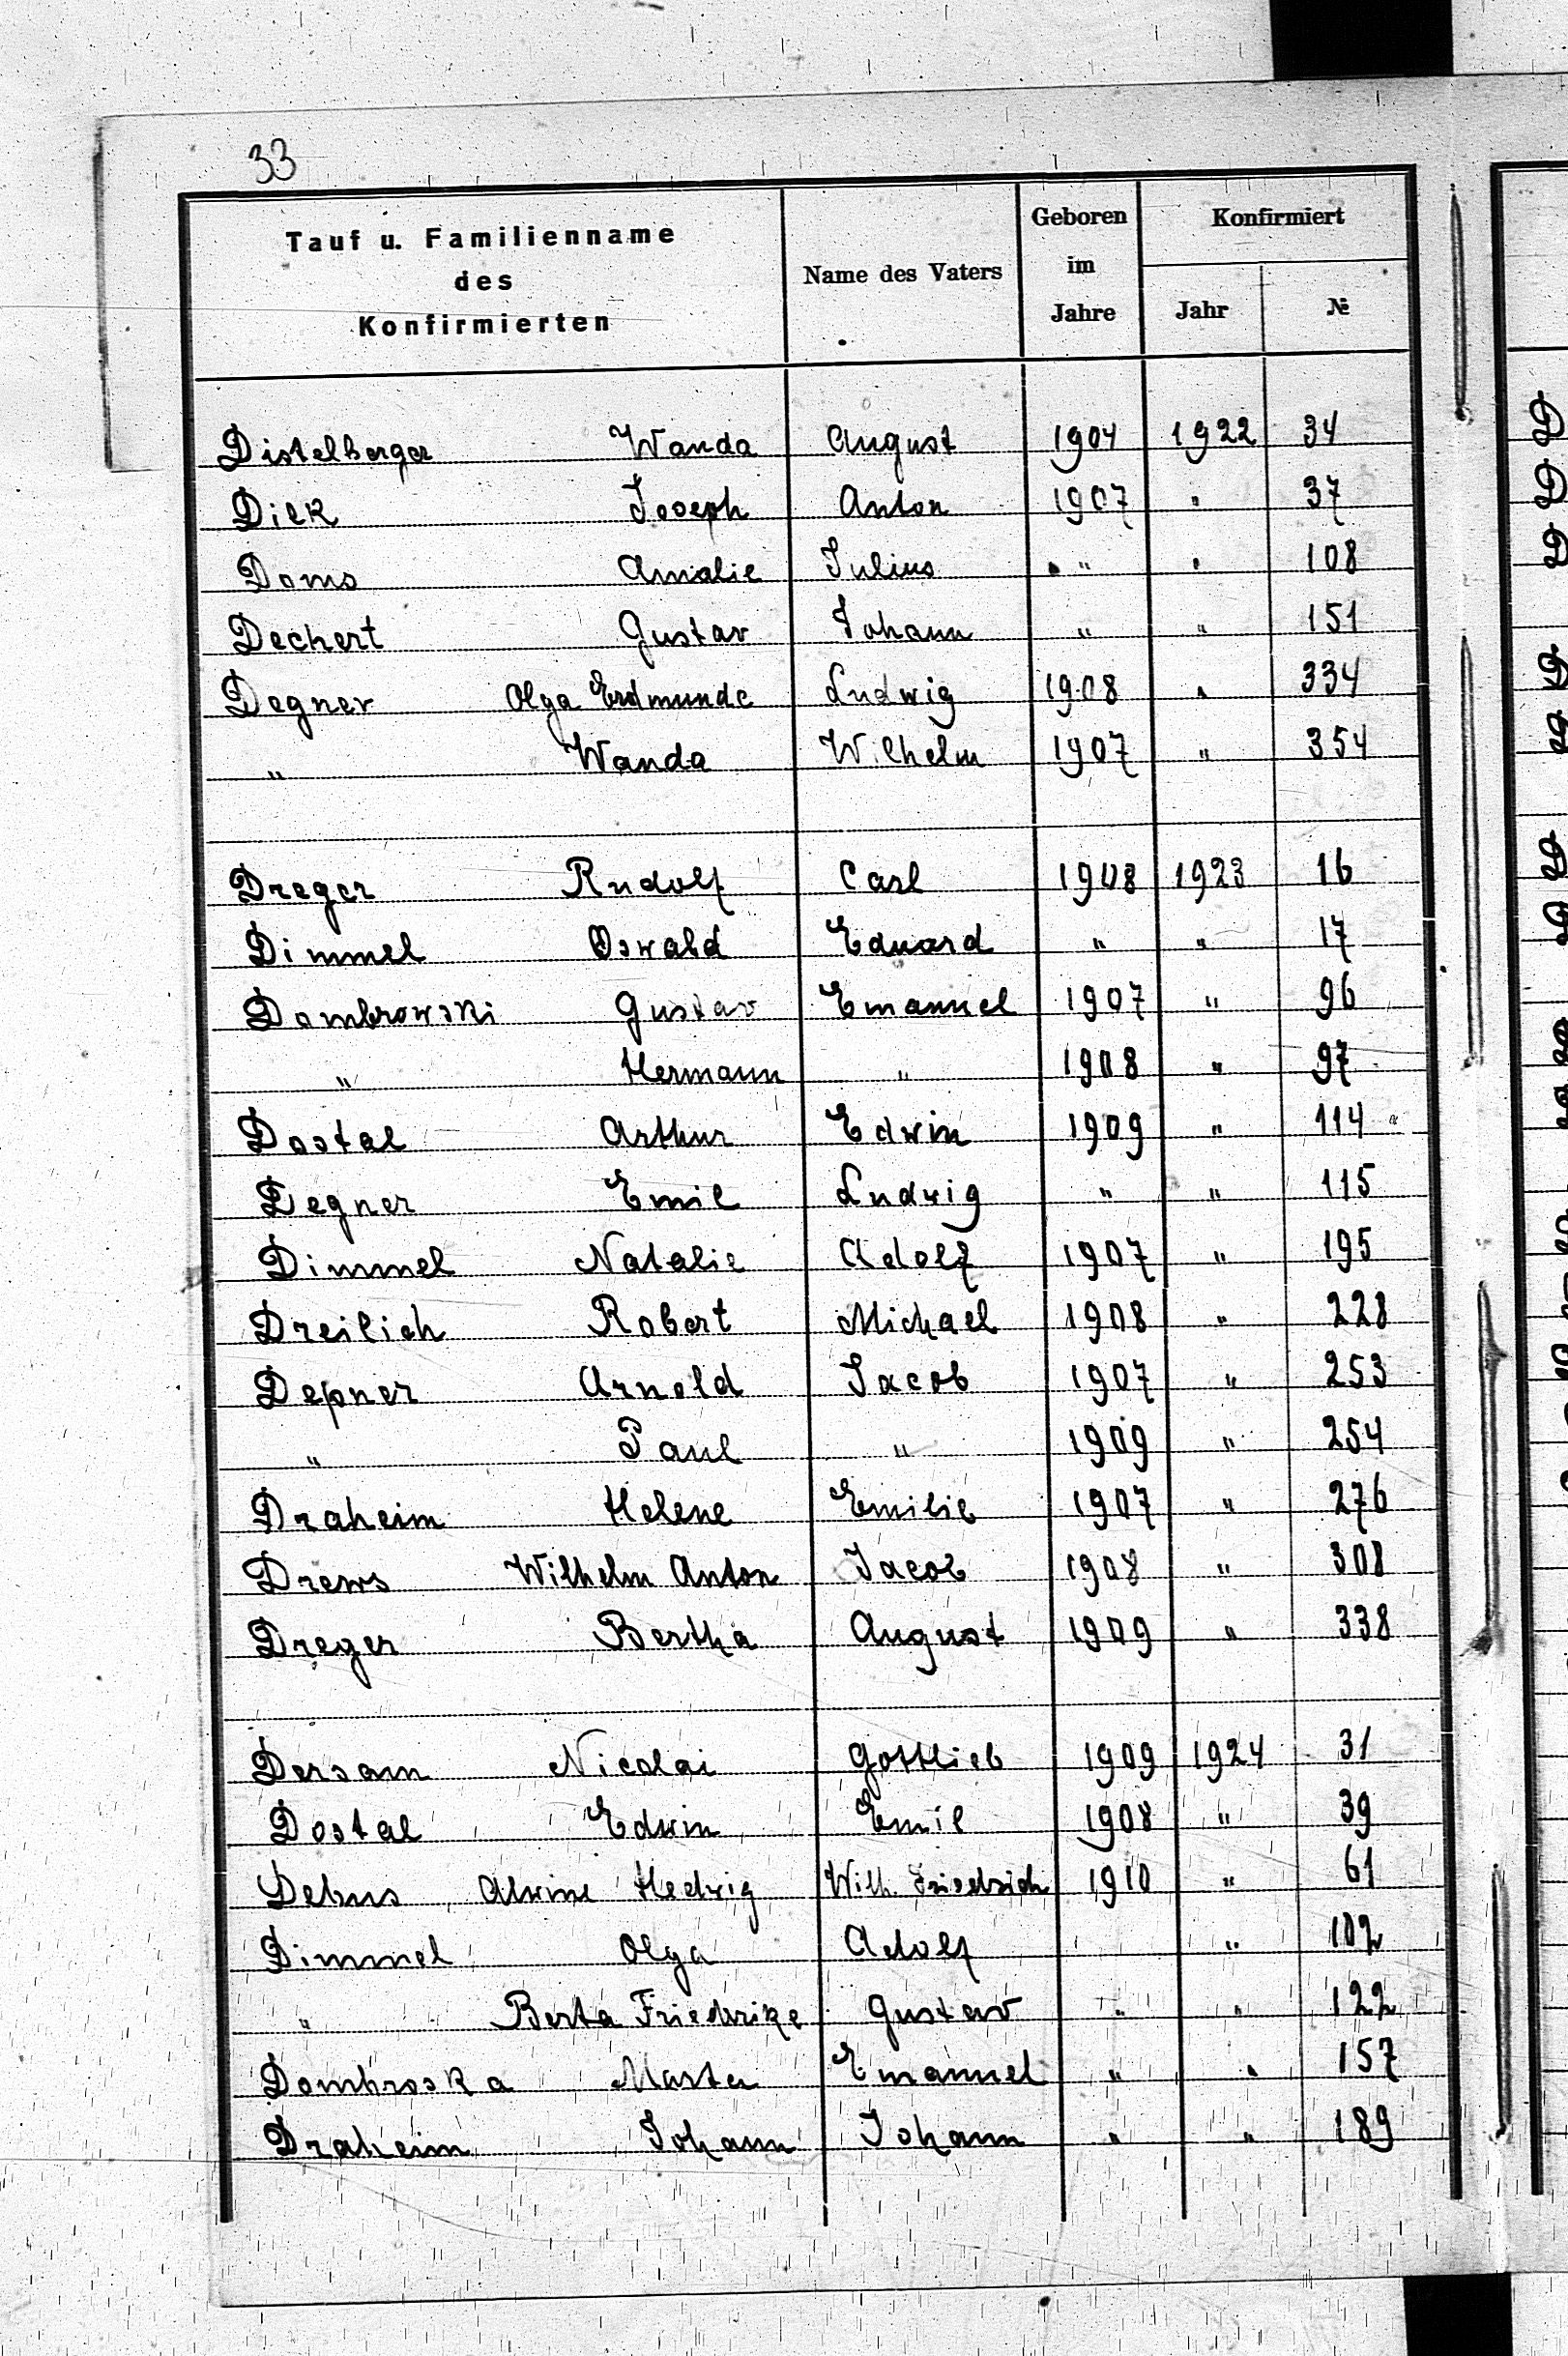 33
Tauf u. Familienname des Konfirmierten Name des Vaters Geboren im Jahre Konfirmiert Jahr №
Distelberger Wanda August 1904 1922 34
Dick Joseph Anton 1907 " 37
Doms Amalie Julius " " 108
Dechert Gustav Johann " " 151
Degner Olga Erdmunde Ludwig 1908 " 334
" Wanda Wilhelm 1907 " 354
Dreger Rudolf Carl 1908 1923 16
Dimmel Oswald Eduard " " 17
Dombrowski Gustav Emanuel 1907 " 96
" Hermann " 1908 " 97
Dostal Arthur Edwin 1909 " 114
Degner Emil Ludwig " " 115
Dimmel Natalie Adolf 1907 " 195
Dreilich Robert Michael 1908 " 228
Depner Arnold Jacob 1907 " 253
" Paul " 1909 " 254
Draheim Helene Emilie 1907 " 276
Drews Wilhelm Anton Jacob 1908 " 308
Dreger Bertha August 1909 " 338
Dersam Nicolai Gottlieb 1909 1924 31
Dostal Edwin Emil 1908 " 39
Debus Alwine Hedwig Wilh. Friedrich 1910 " 61
Dimmel Olga Adolf " 102
" Berta Friedrike Gustav " " 122
Dombroska Marta Emanuel " " 157
Draheim Johann Johann " " 189